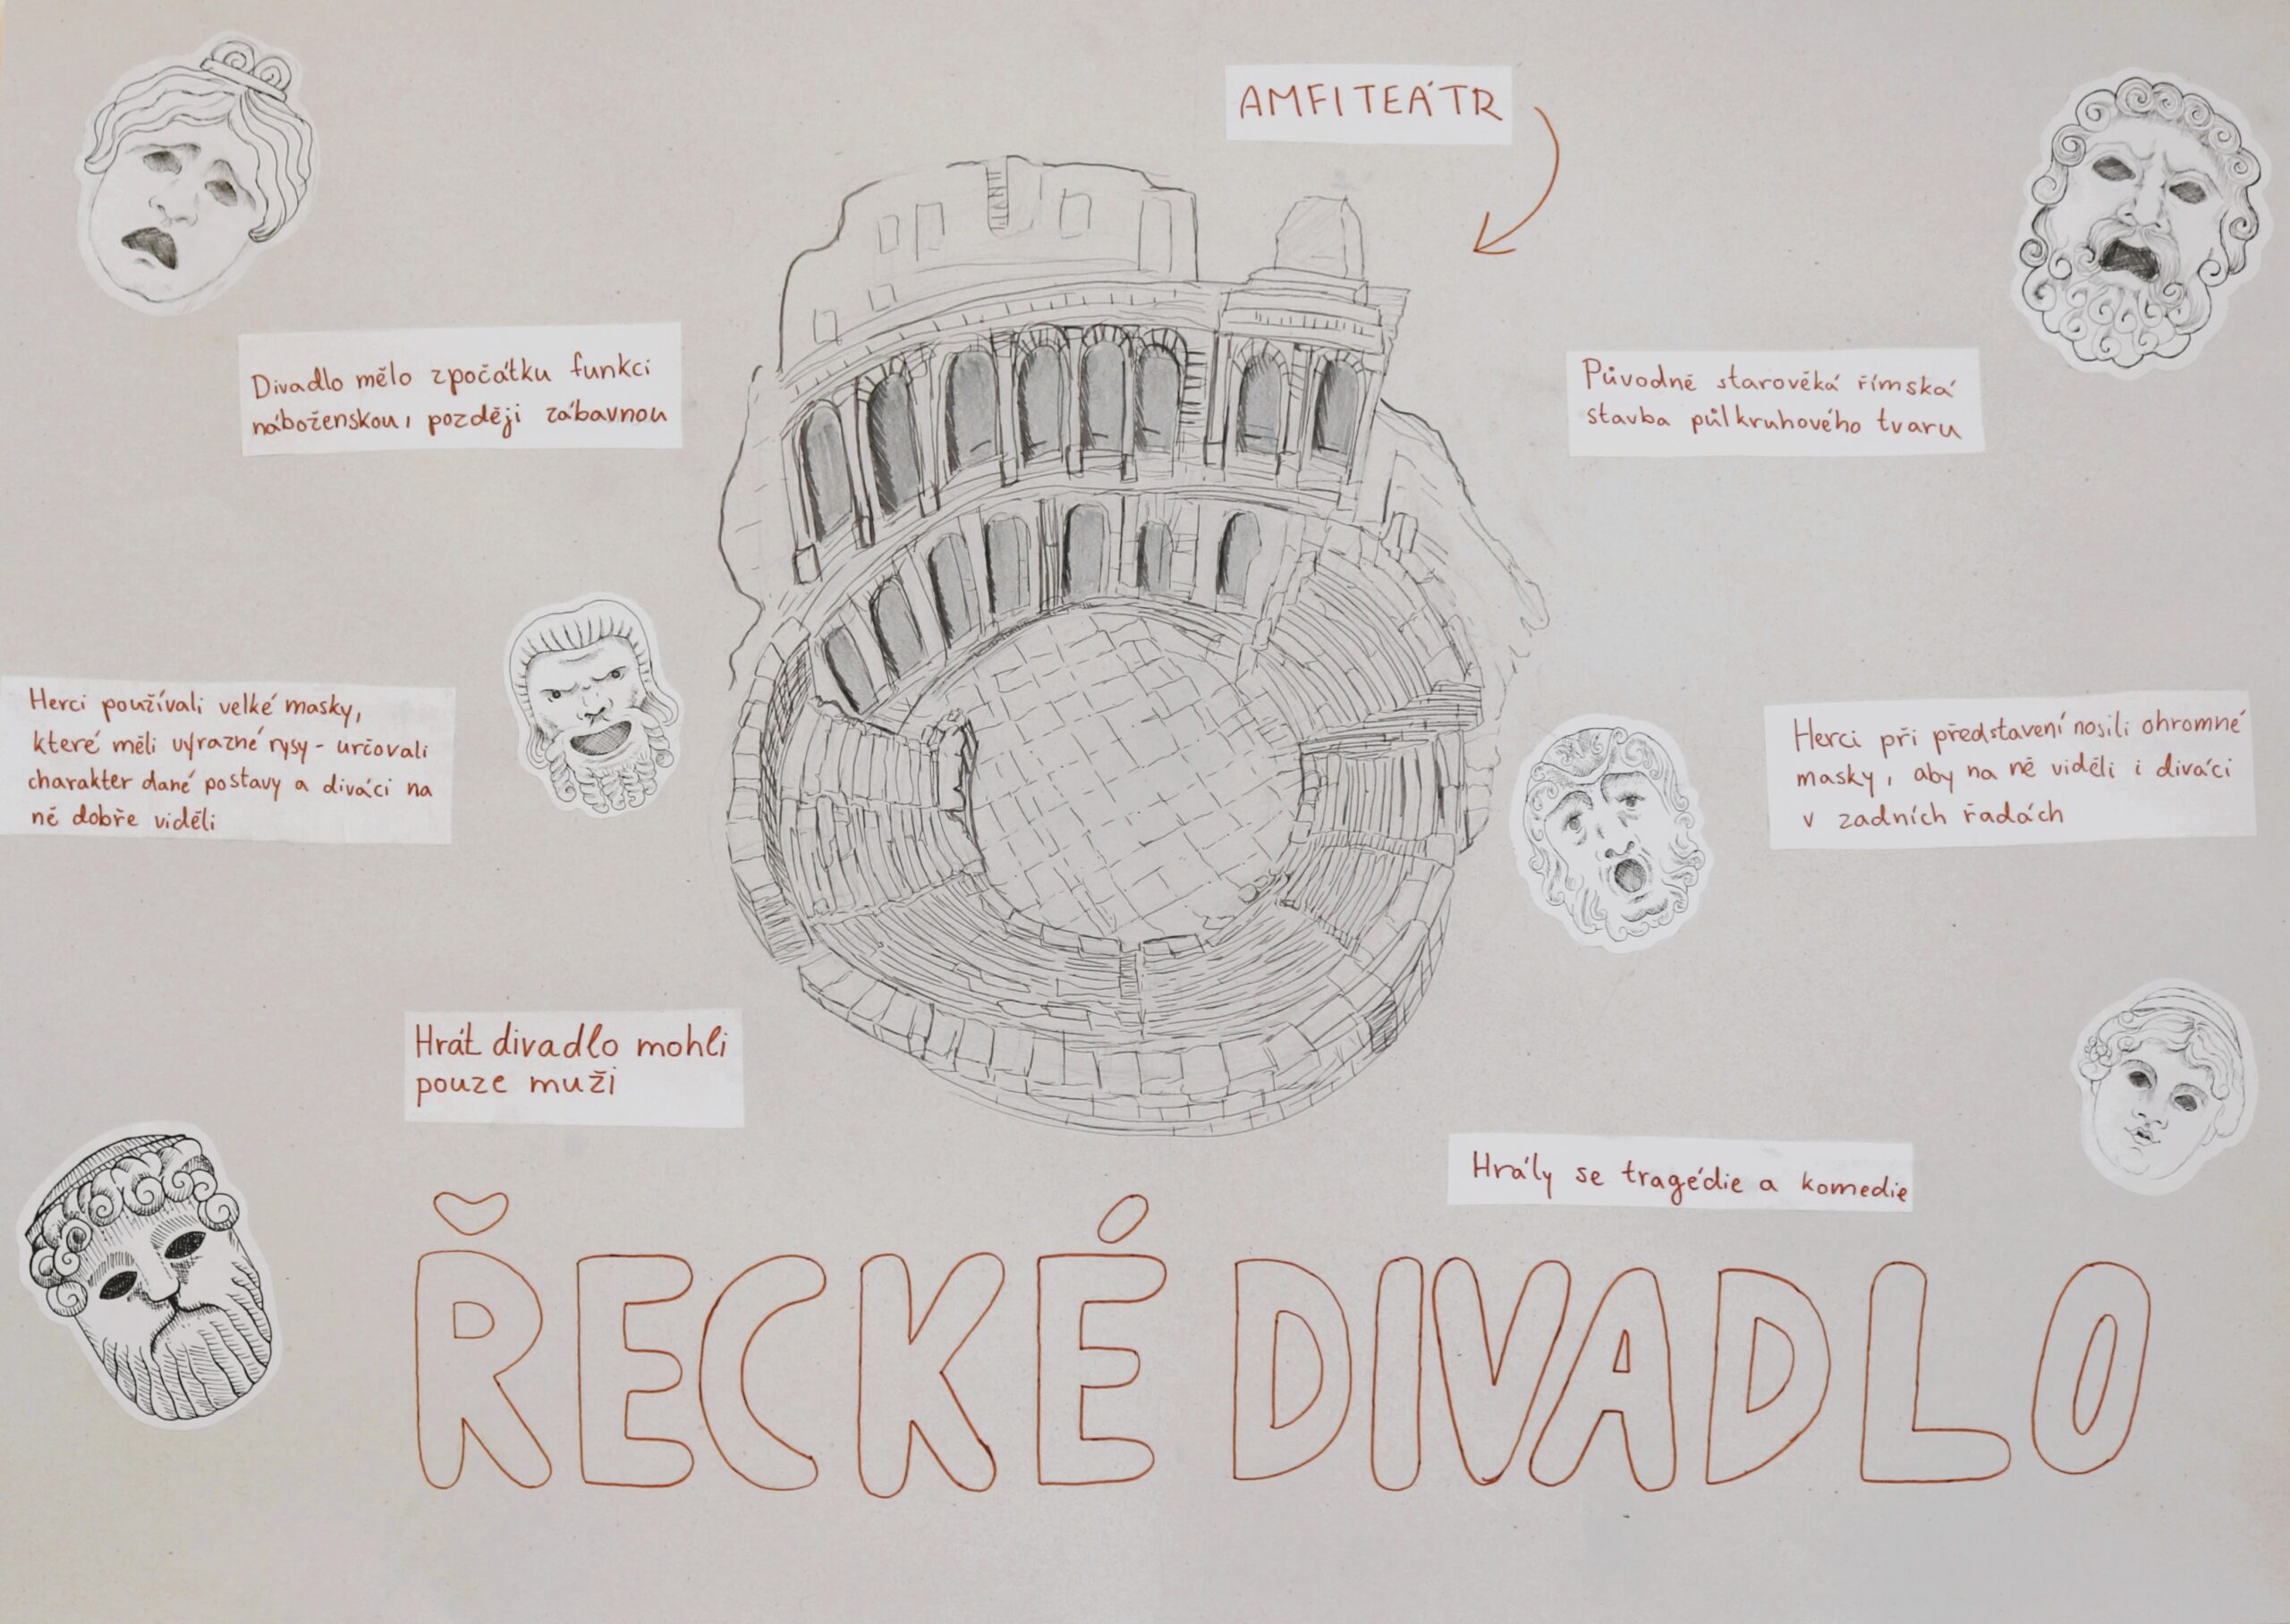 AMFITEÁTR
Divadlo mělo zpočátku funkci
náboženskou, později zábavnou
Původně starověká římská
stavba půlkruhového tvaru
Herci používali velké masky,
které měli výrazné rysy - určovali
charakter dané postavy a diváci na
ně dobře viděli
Herci při představení nosili ohromné
masky, aby na ně viděli i diváci
v zadních řadách
Hrát divadlo mohli
pouze muži
Hrály se tragédie a komedie
ŘECKÉ DIVADLO